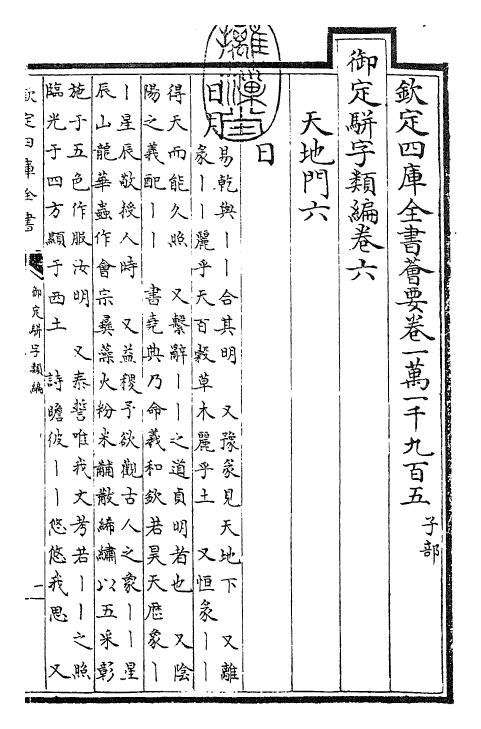 欽定四庫全書薈要卷一萬一千九百五 子部
御定駢字類編卷六
天地門六
日
日月 易乾與丨丨合其明 又豫象見天地下 又離
象丨丨麗乎天百穀草木麗乎土 又恒象丨丨
得天而能久照 又繫辭丨丨之道貞明者也 又陰
陽之義配丨丨 書堯典乃命羲和欽若昊天厯象丨
丨星辰敬授人時 又益稷予欲觀古人之象丨丨星
辰山龍華蟲作會宗彝藻火粉米黼黻絺繡以五采彰
施于五色作服汝明 又泰誓唯我文考若丨丨之照
臨光于四方顯于西土 詩瞻彼丨丨悠悠我思 又
欽定四庫全書
御定駢字類編
一